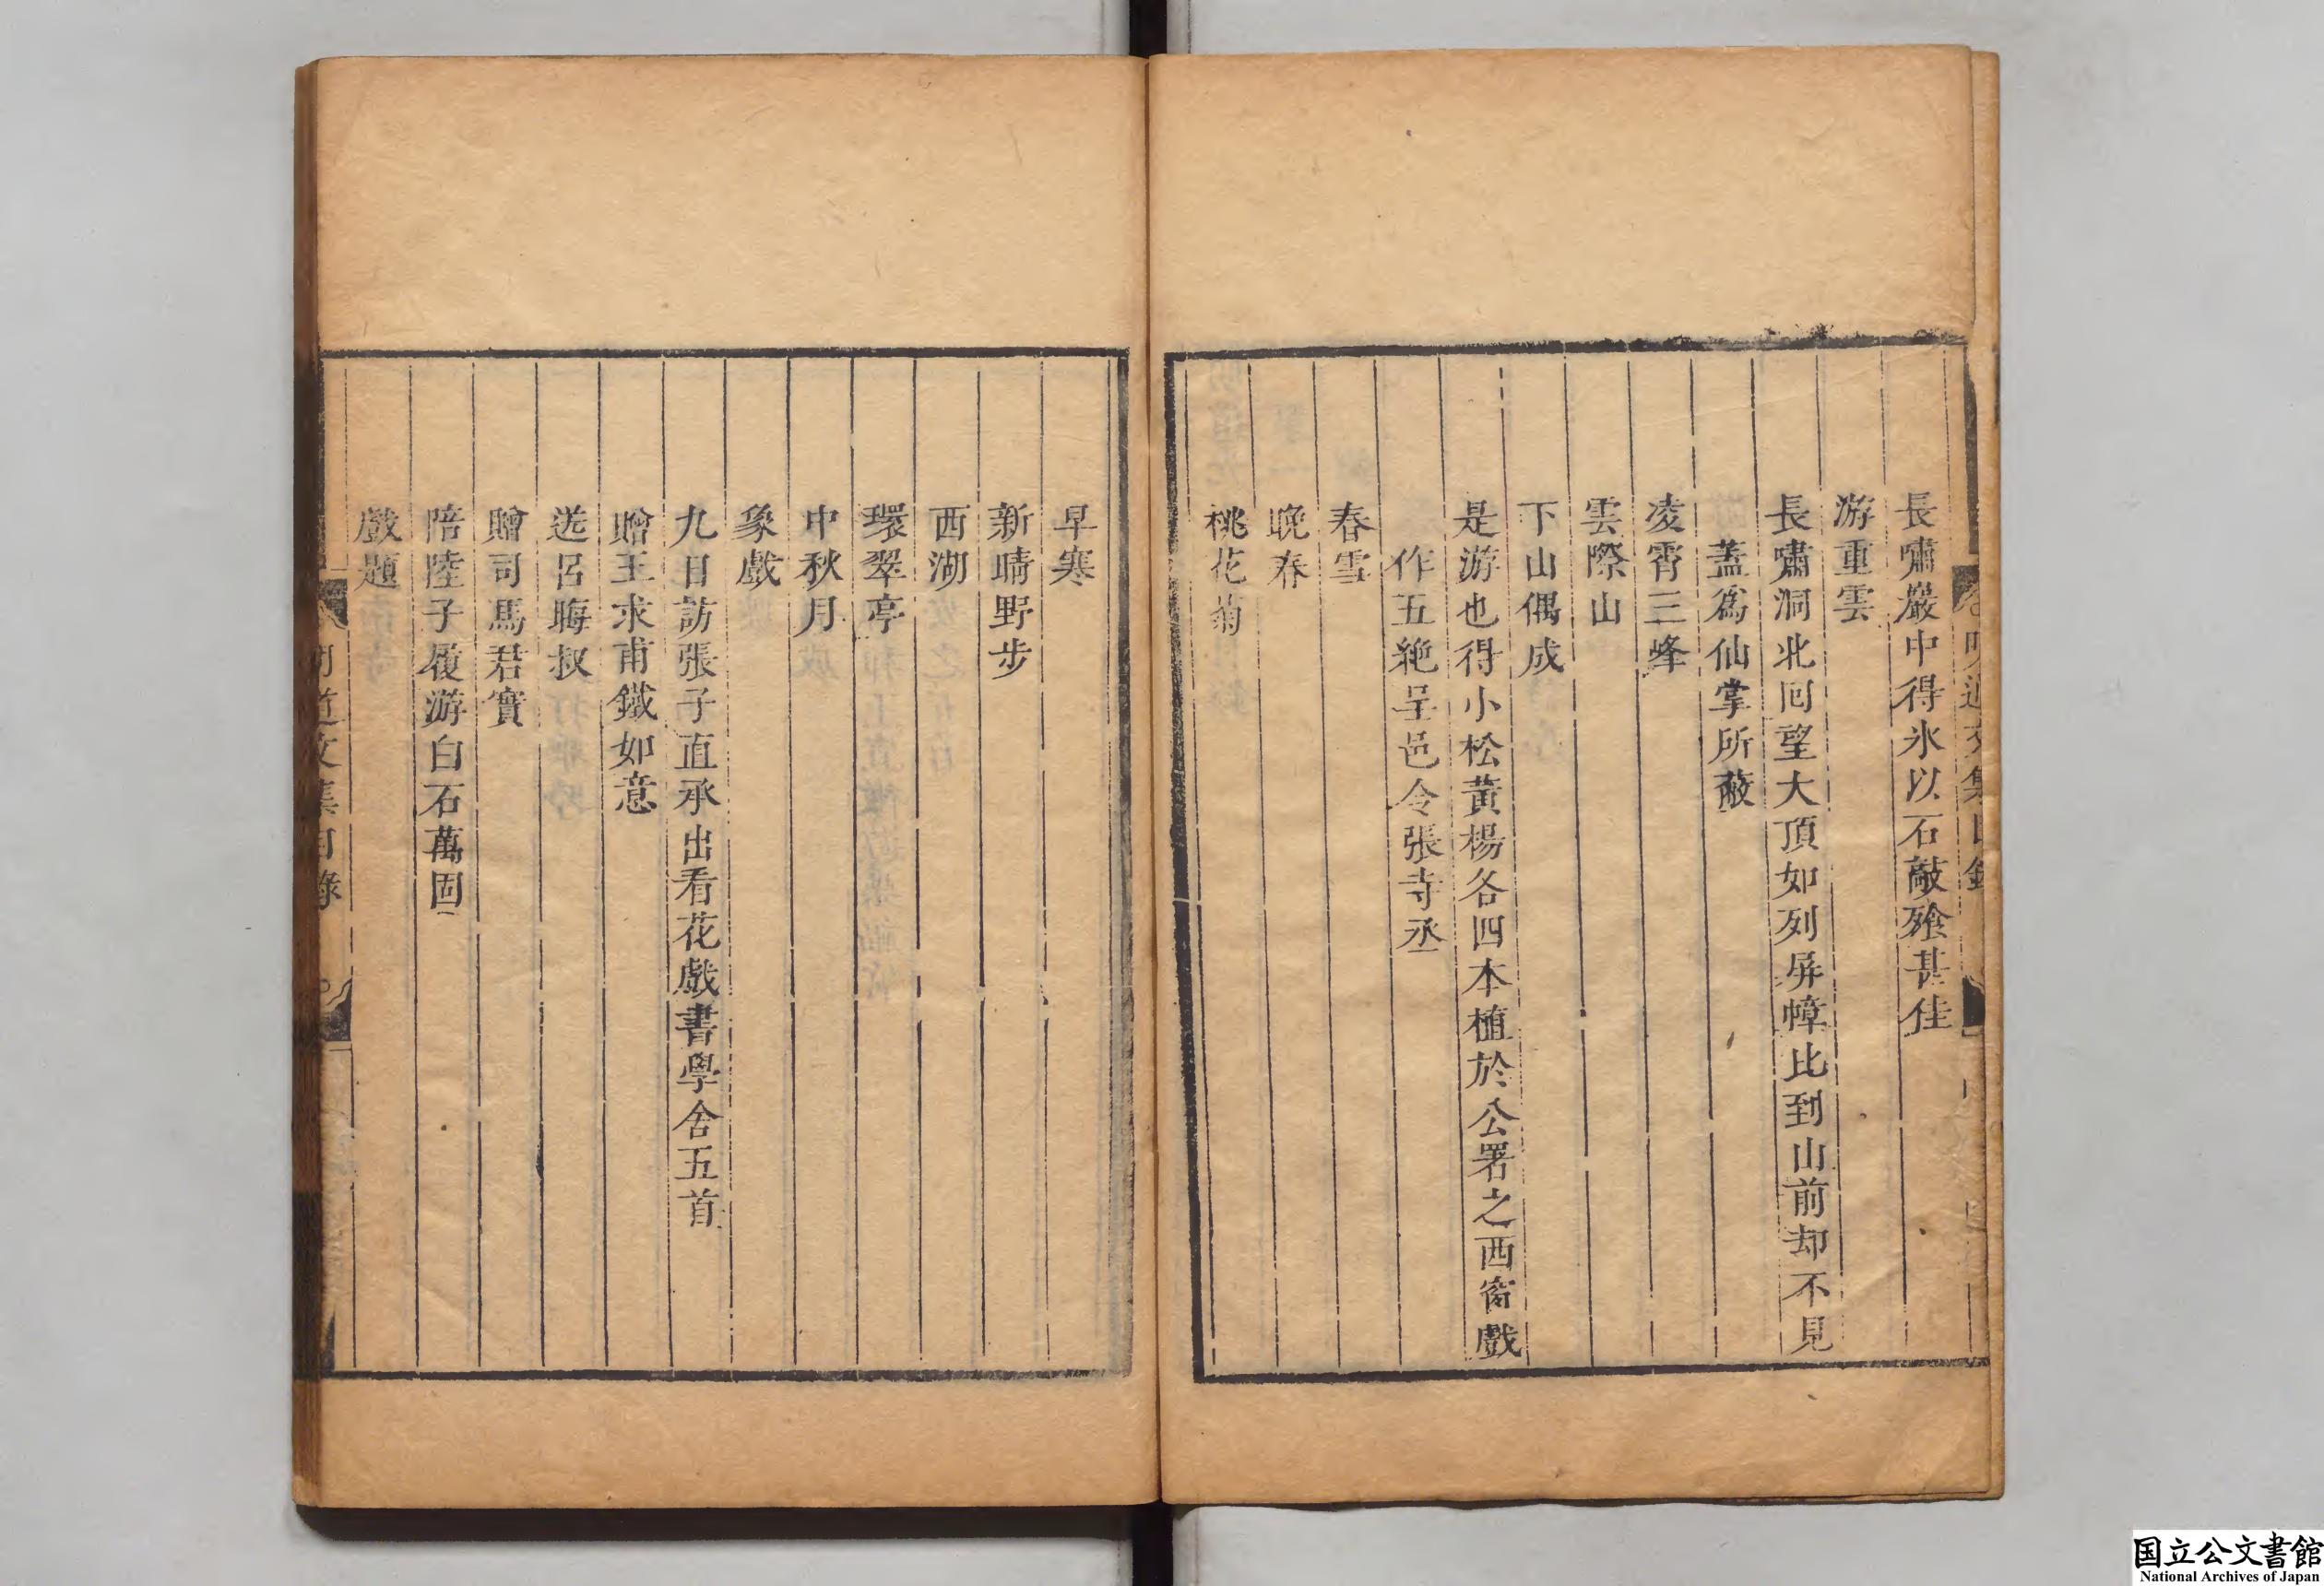 長嘯巖中得氷以石敲飱甚佳
游重雲
長嘯洞北囘望大頂如列屏幛比到山前却不見
蓋爲仙掌所蔽
凌霄三峰
雲際山
下山偶成
是游也得小松黃楊各四本植於公署之西窗戲
作五絶呈邑令張寺丞
春雪
晚春
桃花菊
早寒
新晴野步
西湖
環翠亭
中秋月
象戲
九日訪張子直承出看花戲書學舍五首
贈王求甫鐵如意
送呂晦叔
贈司馬君實
陪陸子履游白石萬固
戲題
明道文集目錄
国立公文書館
National Archives of Japan